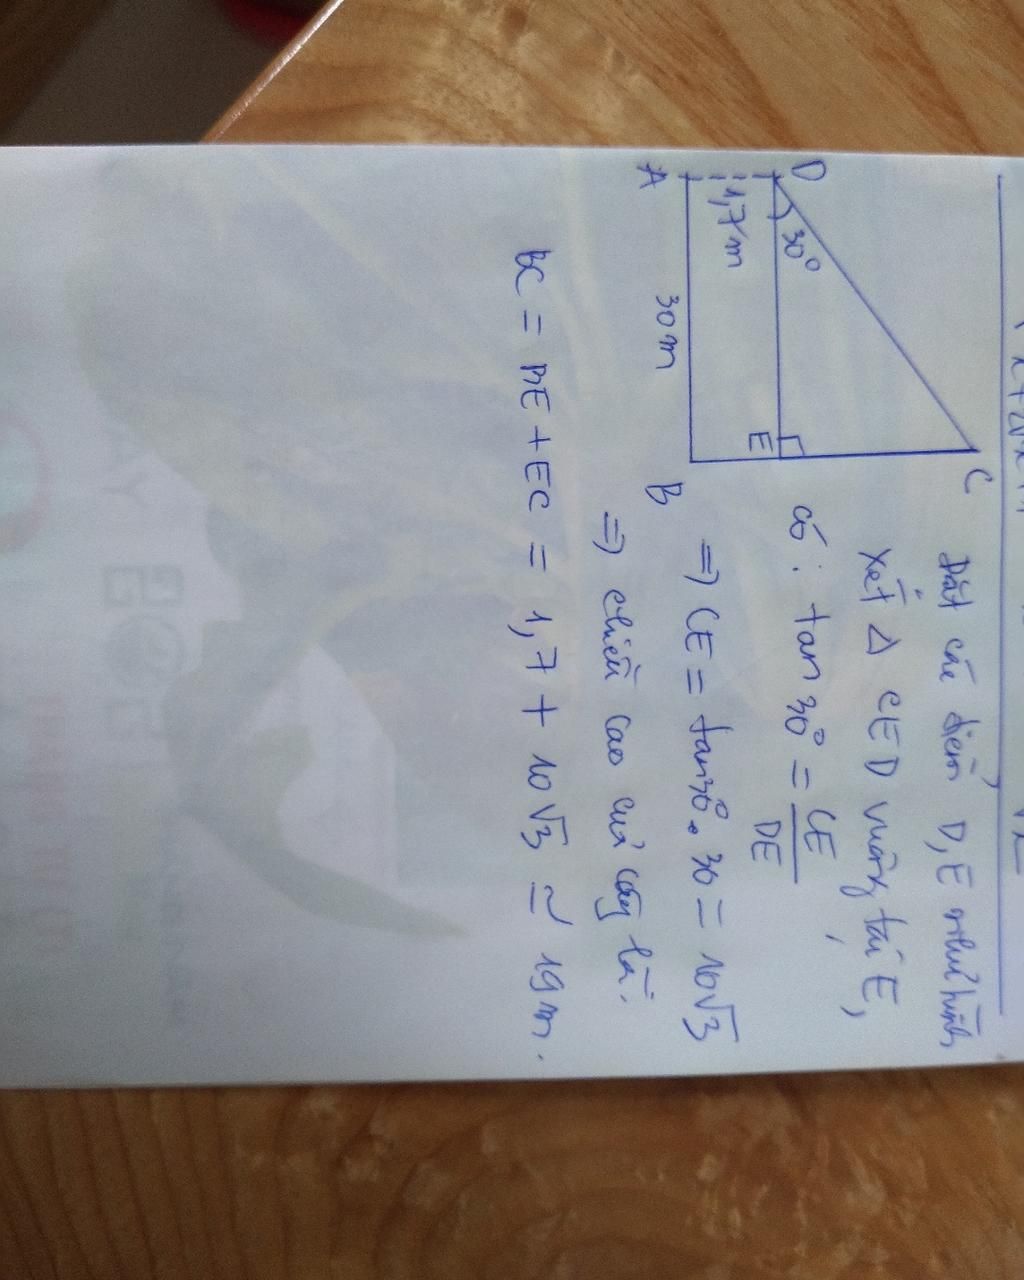 D
C
30°
1,7m
E
A
30m
B
Đặt các điểm D, E như hình
Xét Δ CED vuông tại E,
có: tan 30° = CE/DE,
=> CE = tan30°. 30 = 10√3
=> chiều cao của cây là:
BC = BE + EC = 1,7 + 10√3 ≃ 19m.